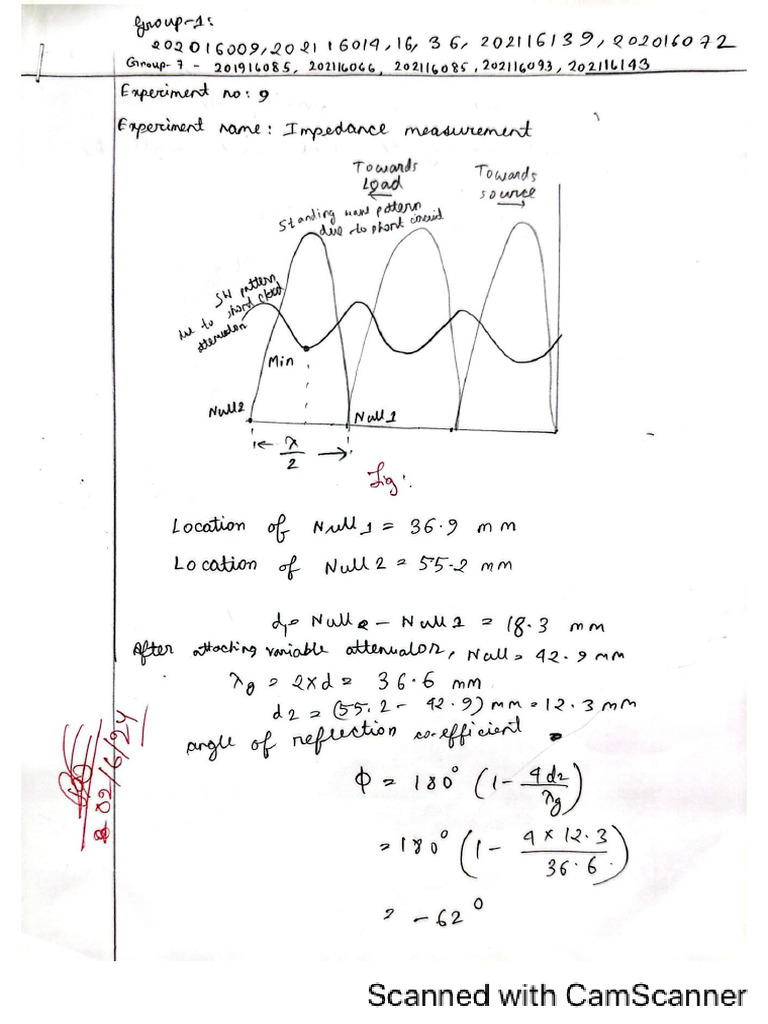 Group-1:
202016009, 202116014, 16, 36, 202116139, 202016072
Group-7 - 201916085, 202116066, 202116085, 202116093, 202116143
Experiment no: 9
Experiment name: Impedance measurement
Towards
Load
Towards
source
Standing wave pattern
due to short circuid
SW pattern
due to short ckt
attenuator
Min
Null2
Null1
λ
2
Fig:
Location of Null1 = 36.9 mm
Location of Null2 = 55.2 mm
d1 = Null2 - Null1 = 18.3 mm
After attaching variable attenuator, Null = 42.9 mm
λg = 2xd = 36.6 mm
d2 = (55.2 - 42.9) mm = 12.3 mm
angle of reflection co-efficient
Φ = 180° (1 - 4d2/λg)
= 180° (1 - 4 x 12.3/36.6)
= -62°
02/6/24
Scanned with CamScanner